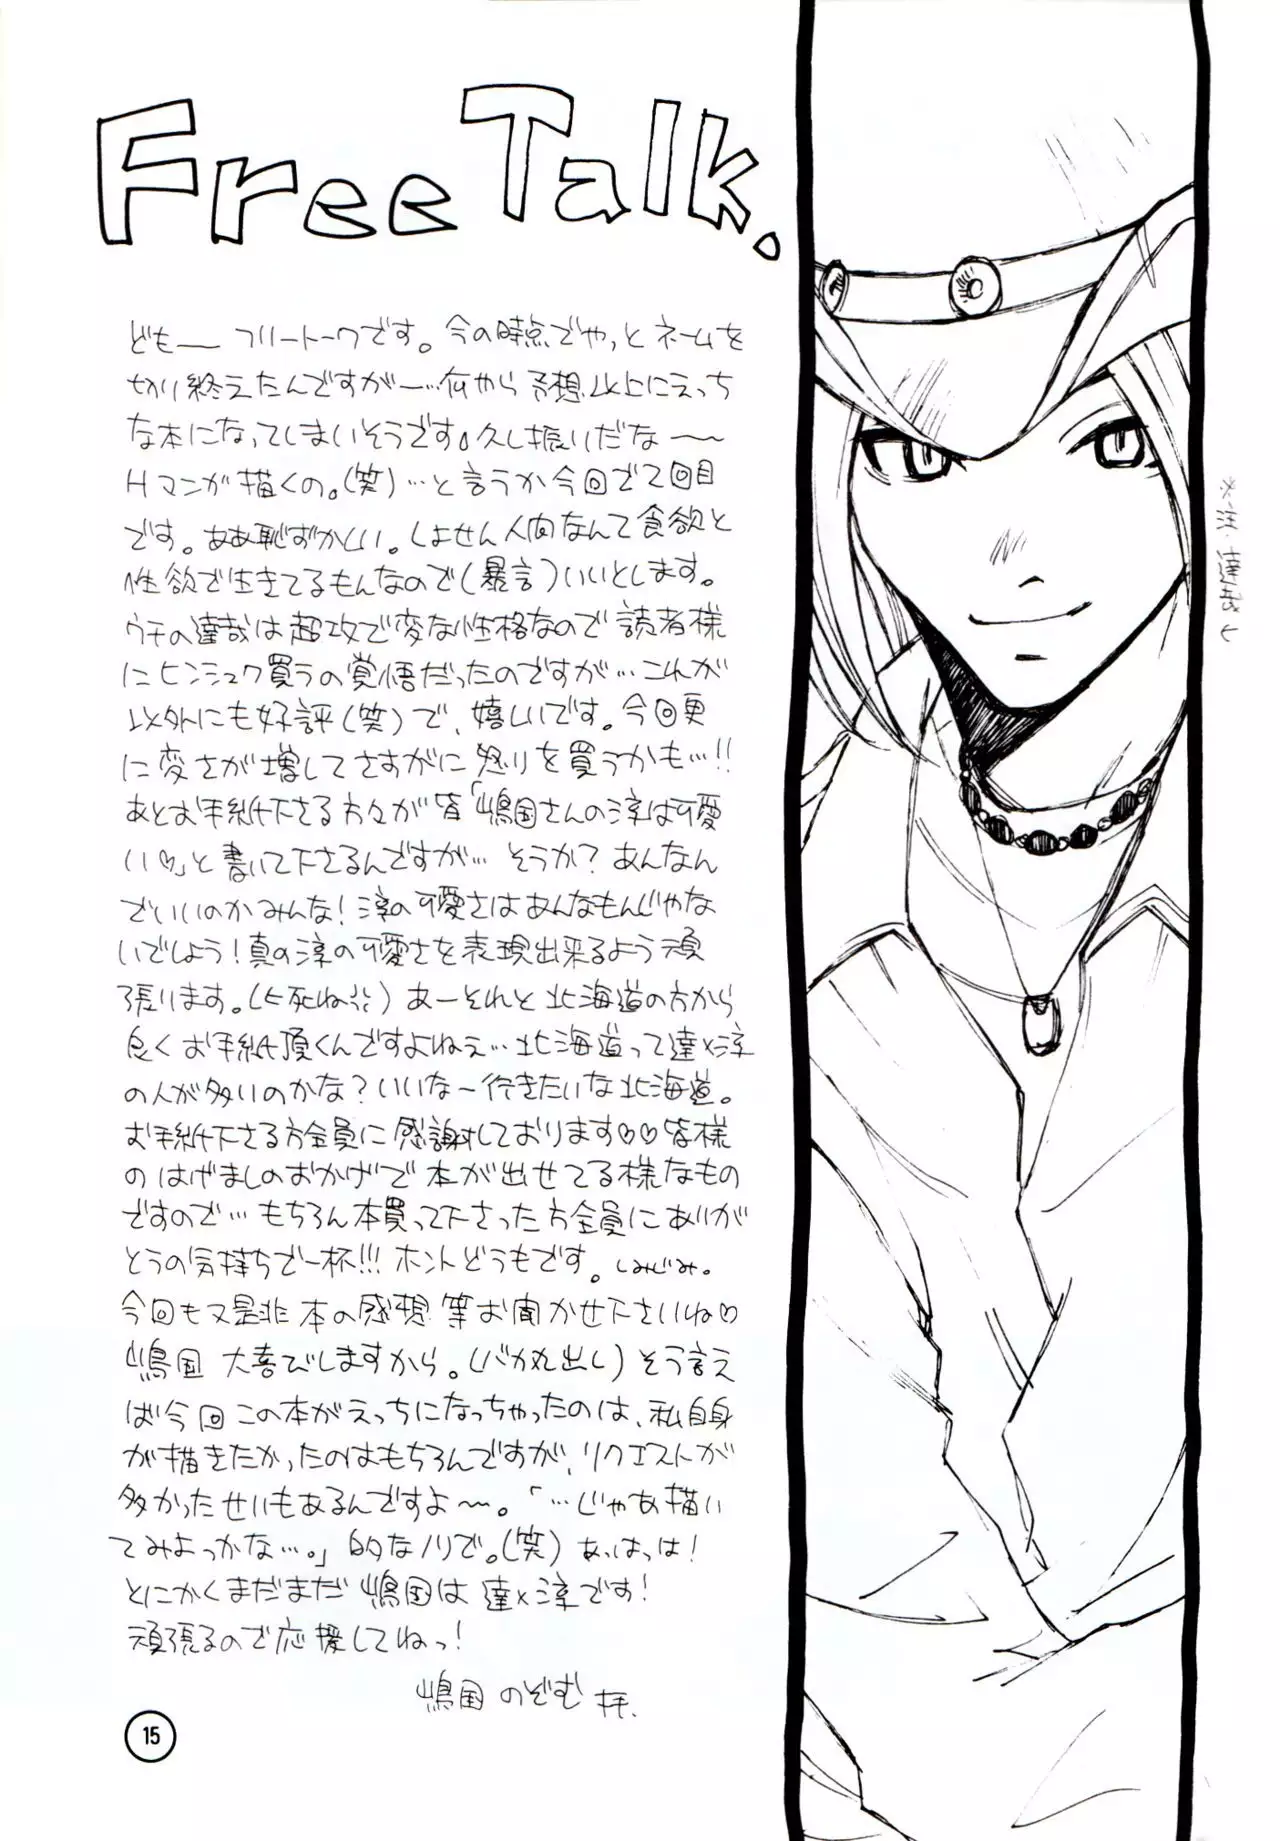 Free Talk.
ども〜 フリートークです。今の時点でやっとネームを
切り終えたんですがー…何やら予想以上にえっち
な本になってしまいそうです。久し振りだな〜
Hマンガ描くの。(笑)…と言うか今回で2回目
です。ああ恥ずかしい。しょせん人間なんて食欲と
性欲で生きてるもんなので(暴言)いいとします。
ウチの達哉は超攻で変な性格なので読者様
にヒンシュク買うの覚悟だったのですが…これが
以外にも好評(笑)で、嬉しいです。今回更
に変さが増してさすがに怒りを買うかも…!!
あとお手紙下さる方々が皆「嶋国さんの淳は可愛
い♡」と書いて下さるんですが… そうか?あんなん
でいいのかみんな!淳の可愛さはあんなもんじゃな
いでしょう!真の淳の可愛さを表現出来るよう頑
張ります。(←死ね) あーそれと北海道の方から
良くお手紙頂くんですよねぇ…北海道って達×淳
の人が多いのかな?いいな〜行きたいな北海道。
お手紙下さる方全員に感謝しております♡♡皆様
のはげましのおかげで本が出せてる様なもの
ですので…もちろん本買って下さった方全員にありが
とうの気持ちで一杯!!!ホントどうもです。しみじみ。
今回も又是非本の感想等お聞かせ下さいね♡
嶋国 大喜びしますから。(バカ丸出し)そう言え
ば今回この本がえっちになっちゃったのは、私自身
が描きたかったのはもちろんですが、リクエストが
多かったせいもあるんですよ〜。「…じゃあ描い
てみよっかな…。」的なノリで。(笑)あっはっは!
とにかくまだまだ嶋国は達×淳です!
頑張るので応援してねっ!
嶋国 のぞむ 拝.
15
※注・達哉